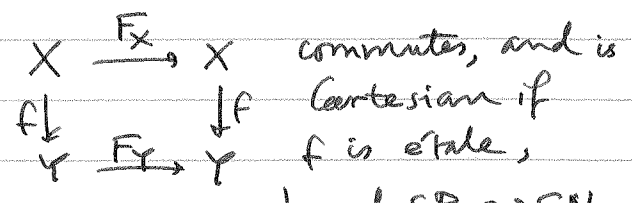 X F_X→ X commutes, and is
f↓ ↓f Cartesian if
Y F_Y→ Y f is étale,